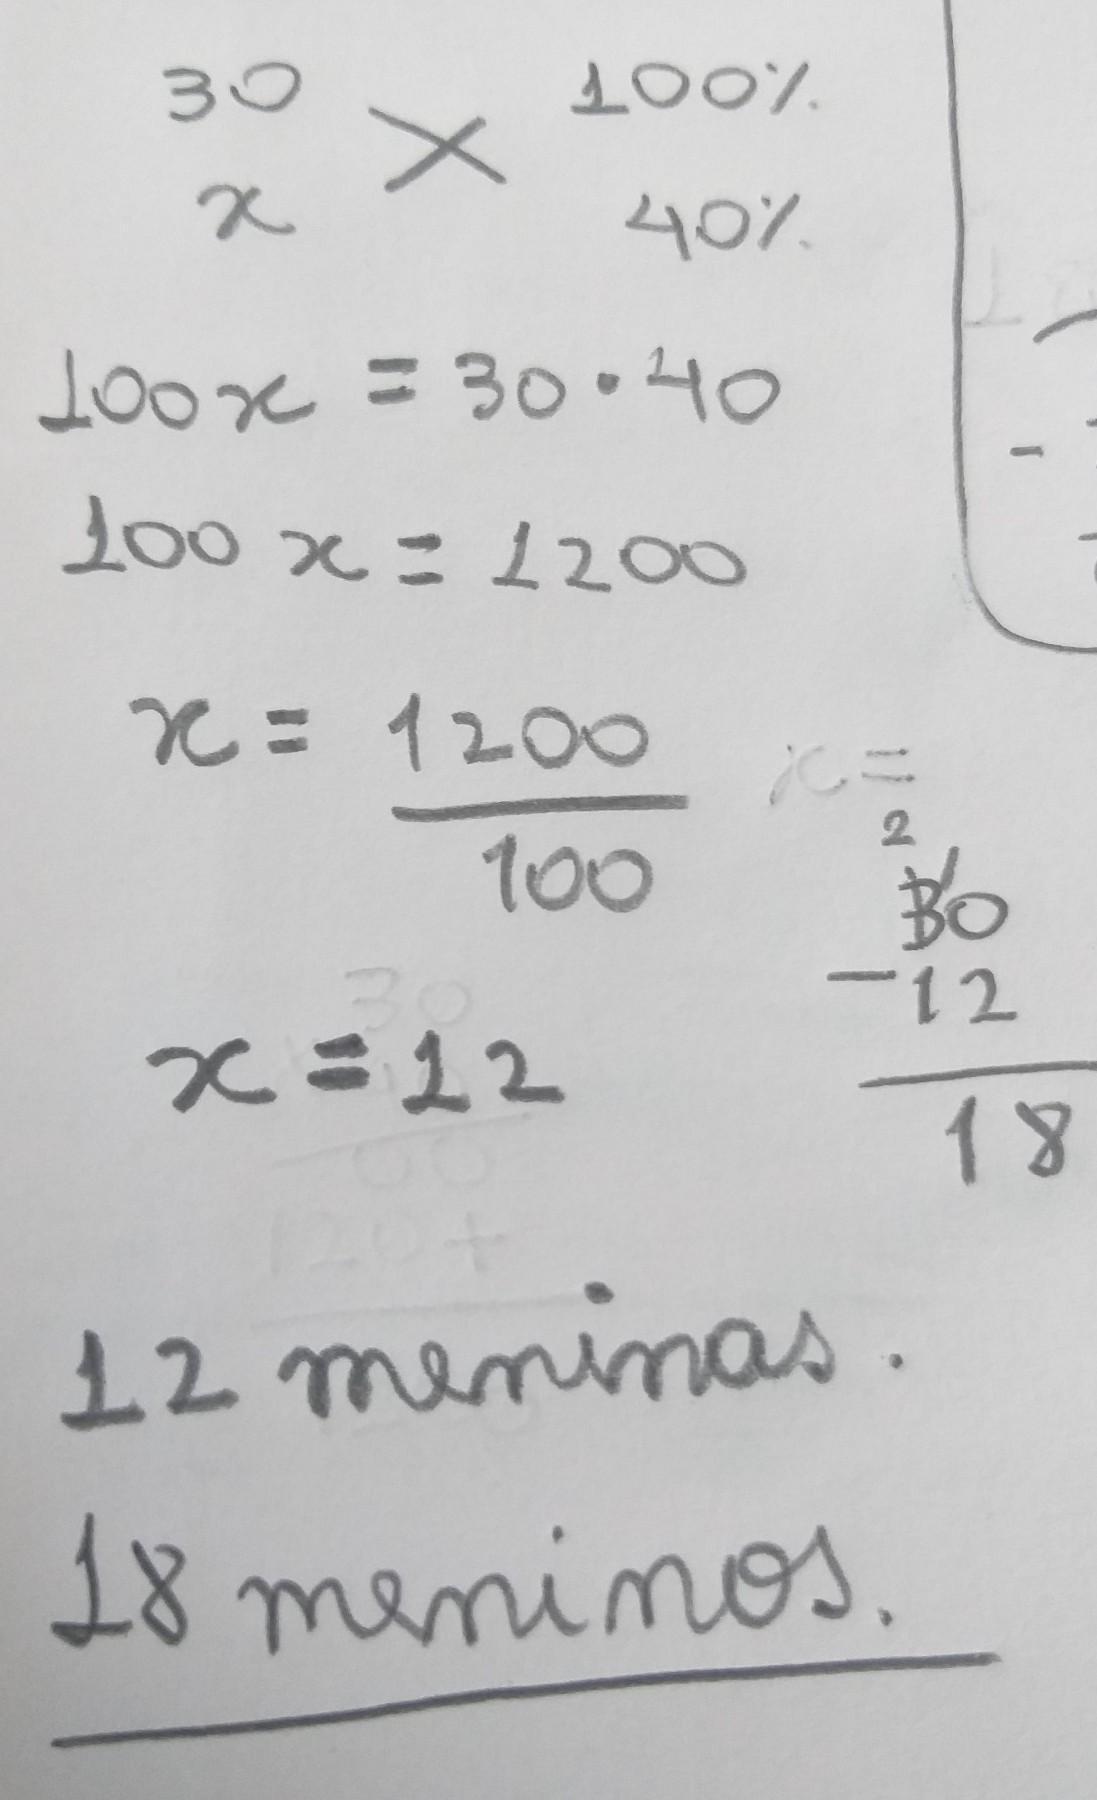 30 100%
x 40%
100x = 30 · 40
100x = 1200
x = 1200
100
x =
2
30
-12
18
x = 12
12 meninas.
18 meninos.